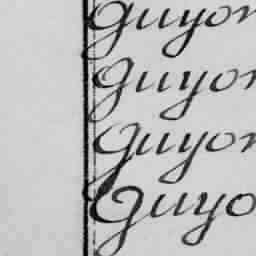 guyon
guyon
guyon
guyo